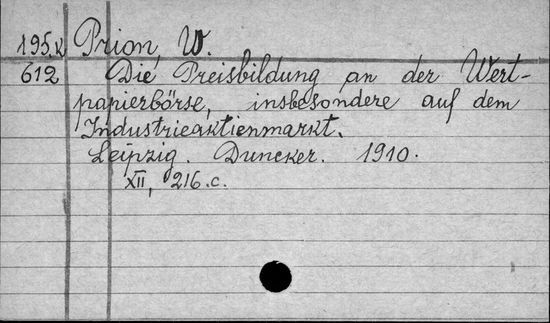 195.K Prion, W.
612 Die Preisbildung an der Wert-
papierbörse, insbesondere auf dem
Industrieaktienmarkt.
Leipzig. Duncker. 1910.
XII, 216.c.